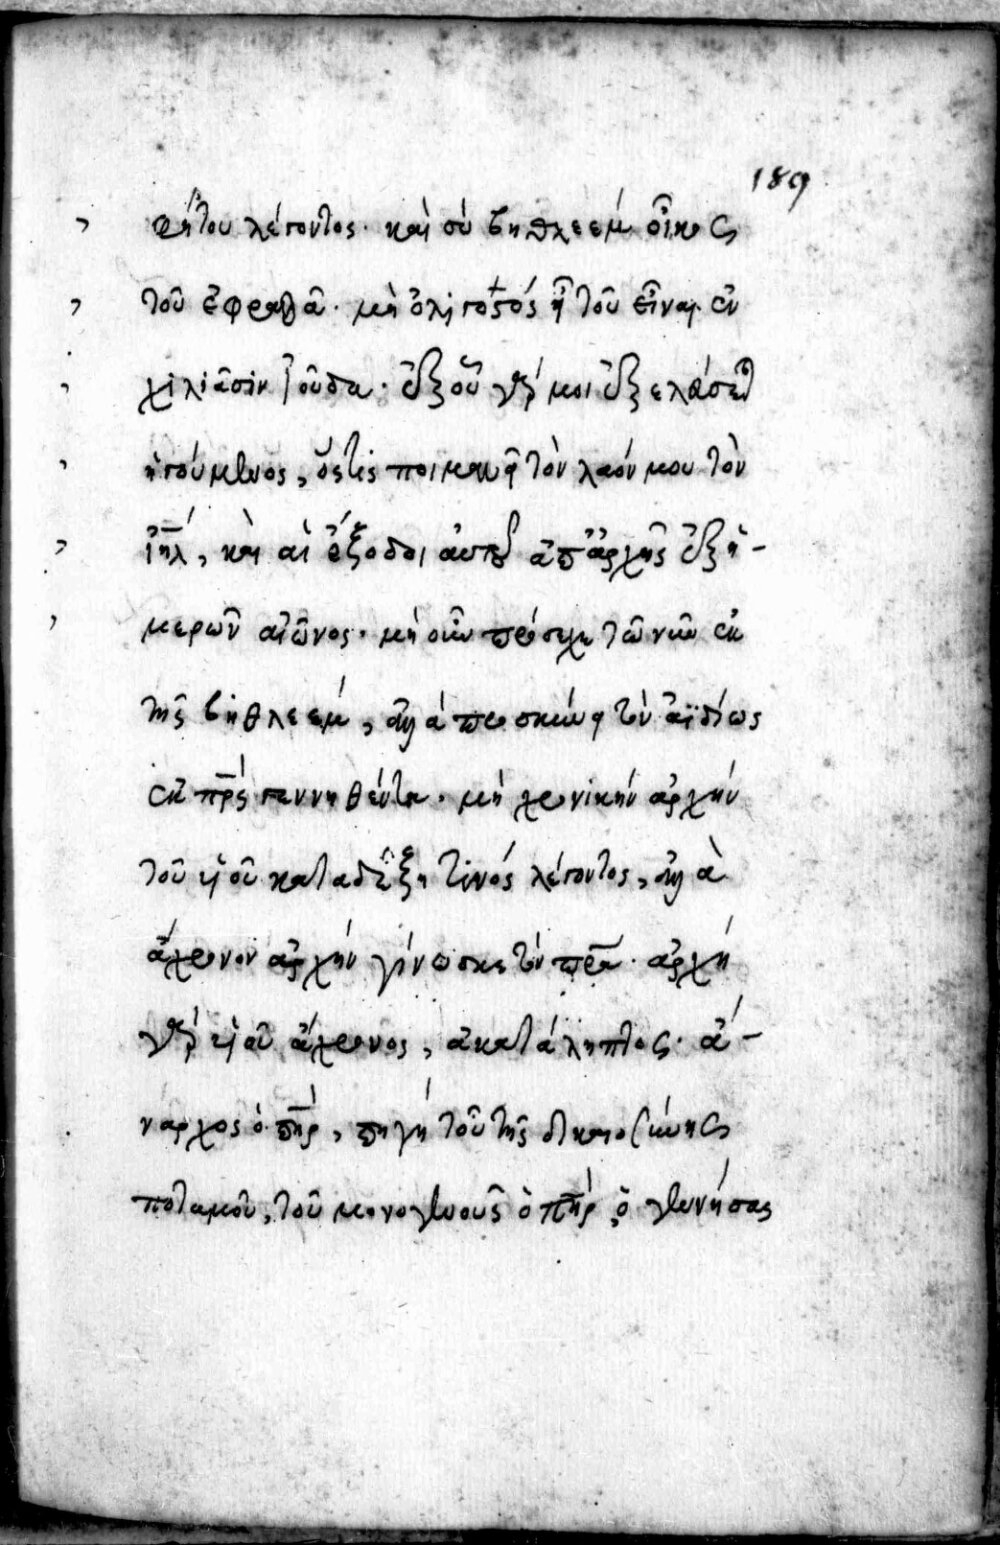 189
φήτου λέγοντος· καὶ σὺ βηθλεὲμ οἶκος
τοῦ ἐφραθᾶ· μὴ ὀλιγοστὸς ἦ τοῦ εἶναι ἐν
χιλιᾶσιν ἰούδα· ἐξ οὗ γάρ μοι ἐξελεύσεται
ἡγούμενος, ὅστις ποιμανῆ τὸν λαόν μου τὸν
ἰηλ, καὶ αἱ ἔξοδοι αὐτοῦ ἀπ' ἀρχῆς ἐξ ἡ-
μερῶν αἰῶνος· μὴ οὖν πρόσεχε τῶ νῦν ἐκ
τῆς βηθλεὲμ, ἀλλὰ προσκύνει τὸν ἀϊδίως
ἐκ πρς γεννηθέντα· μὴ χρονικὴν ἀρχὴν
τοῦ υἱοῦ καταδέξη τινὸς λέγοντος, ἀλλὰ
ἄχρονον ἀρχὴν γίνωσκε τὸν πρα· ἀρχὴ
γὰρ υἱοῦ ἄχρονος, ἀκατάληπτος· ἄ-
ναρχος ὁ πηρ, πηγὴ τοῦ τῆς δικαιοσύνης
ποταμοῦ, τοῦ μονογενοῦς ὁ πηρ, ὁ γεννήσας